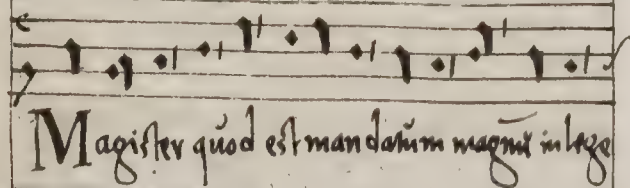 Magister quod est mandatum magnū in lege